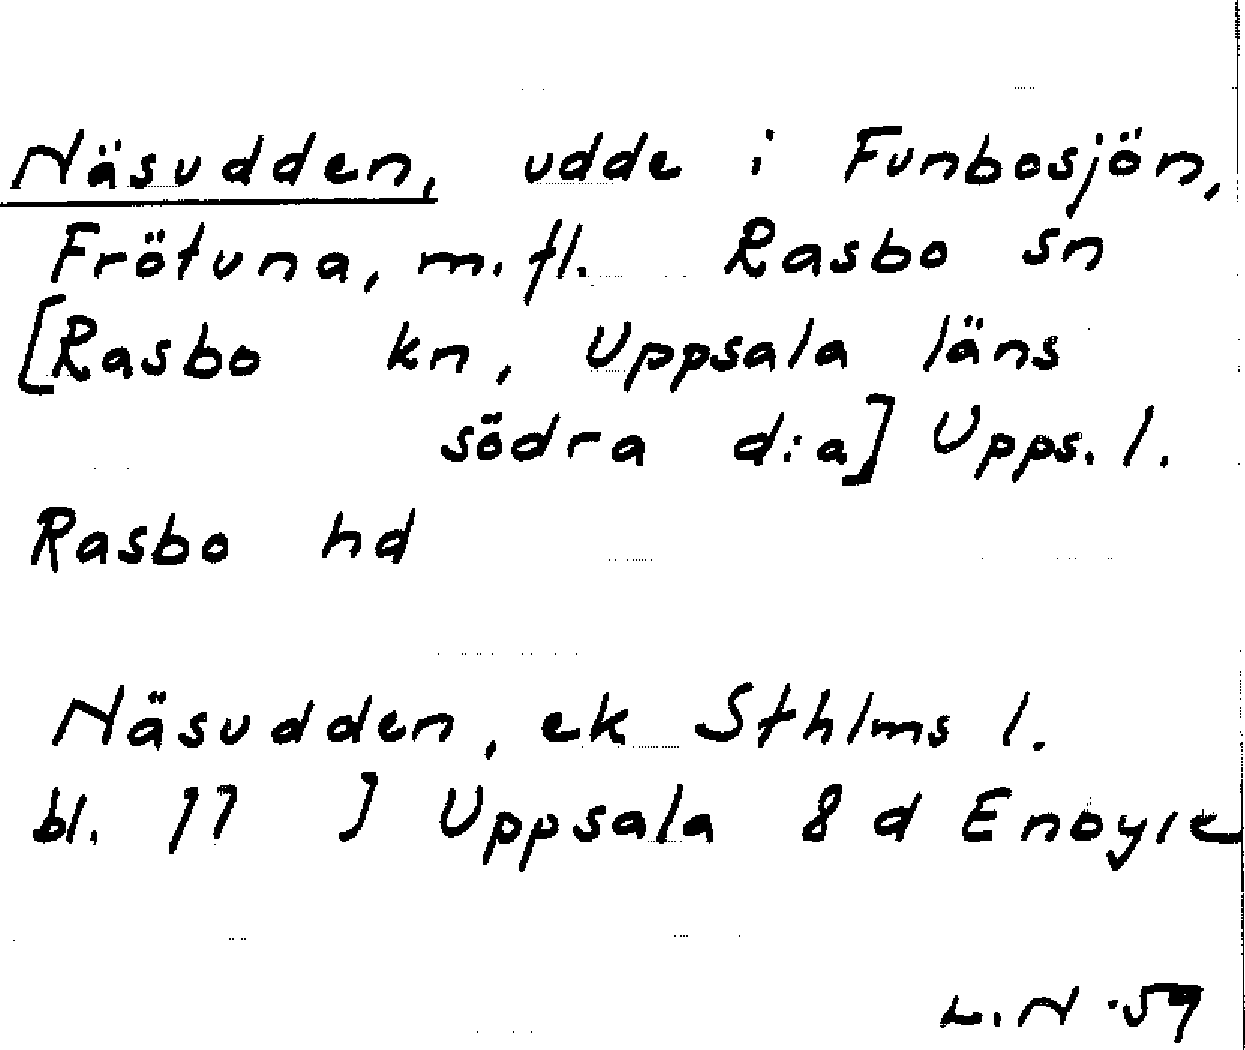 Näsudden, udde i Funbosjön,
Frötuna, m.fl. Rasbo sn
[Rasbo kn, Uppsala läns
södra d:a] Upps. l.
Rasbo hd
Näsudden, ek Sthlms l.
bl. 77 J Uppsala 8 d
L.N -59